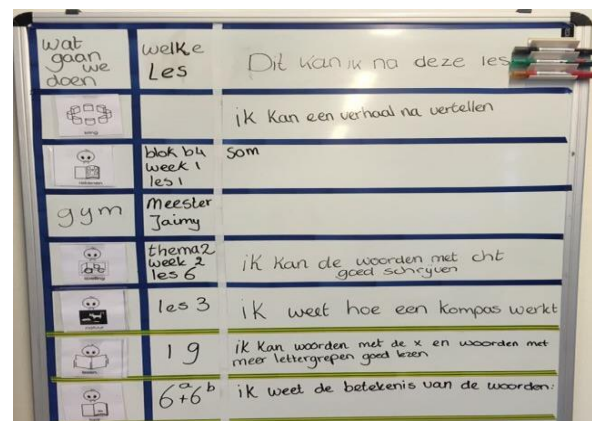 wat
gaan
we
doen
welke
Les
Dit kan ik na deze les
kring
ik kan een verhaal na vertellen
rekenen
blok b4
week 1
les 1
som
gym
Meester
Jaimy
spelling
thema 2
week 2
les 6
ik kan de woorden met cht
goed schrijven
les 3
ik weet hoe een kompas werkt
lezen
19
ik kan woorden met de x en woorden met
meer lettergrepen goed lezen
taal
6a+6b
ik weet de betekenis van de woorden: